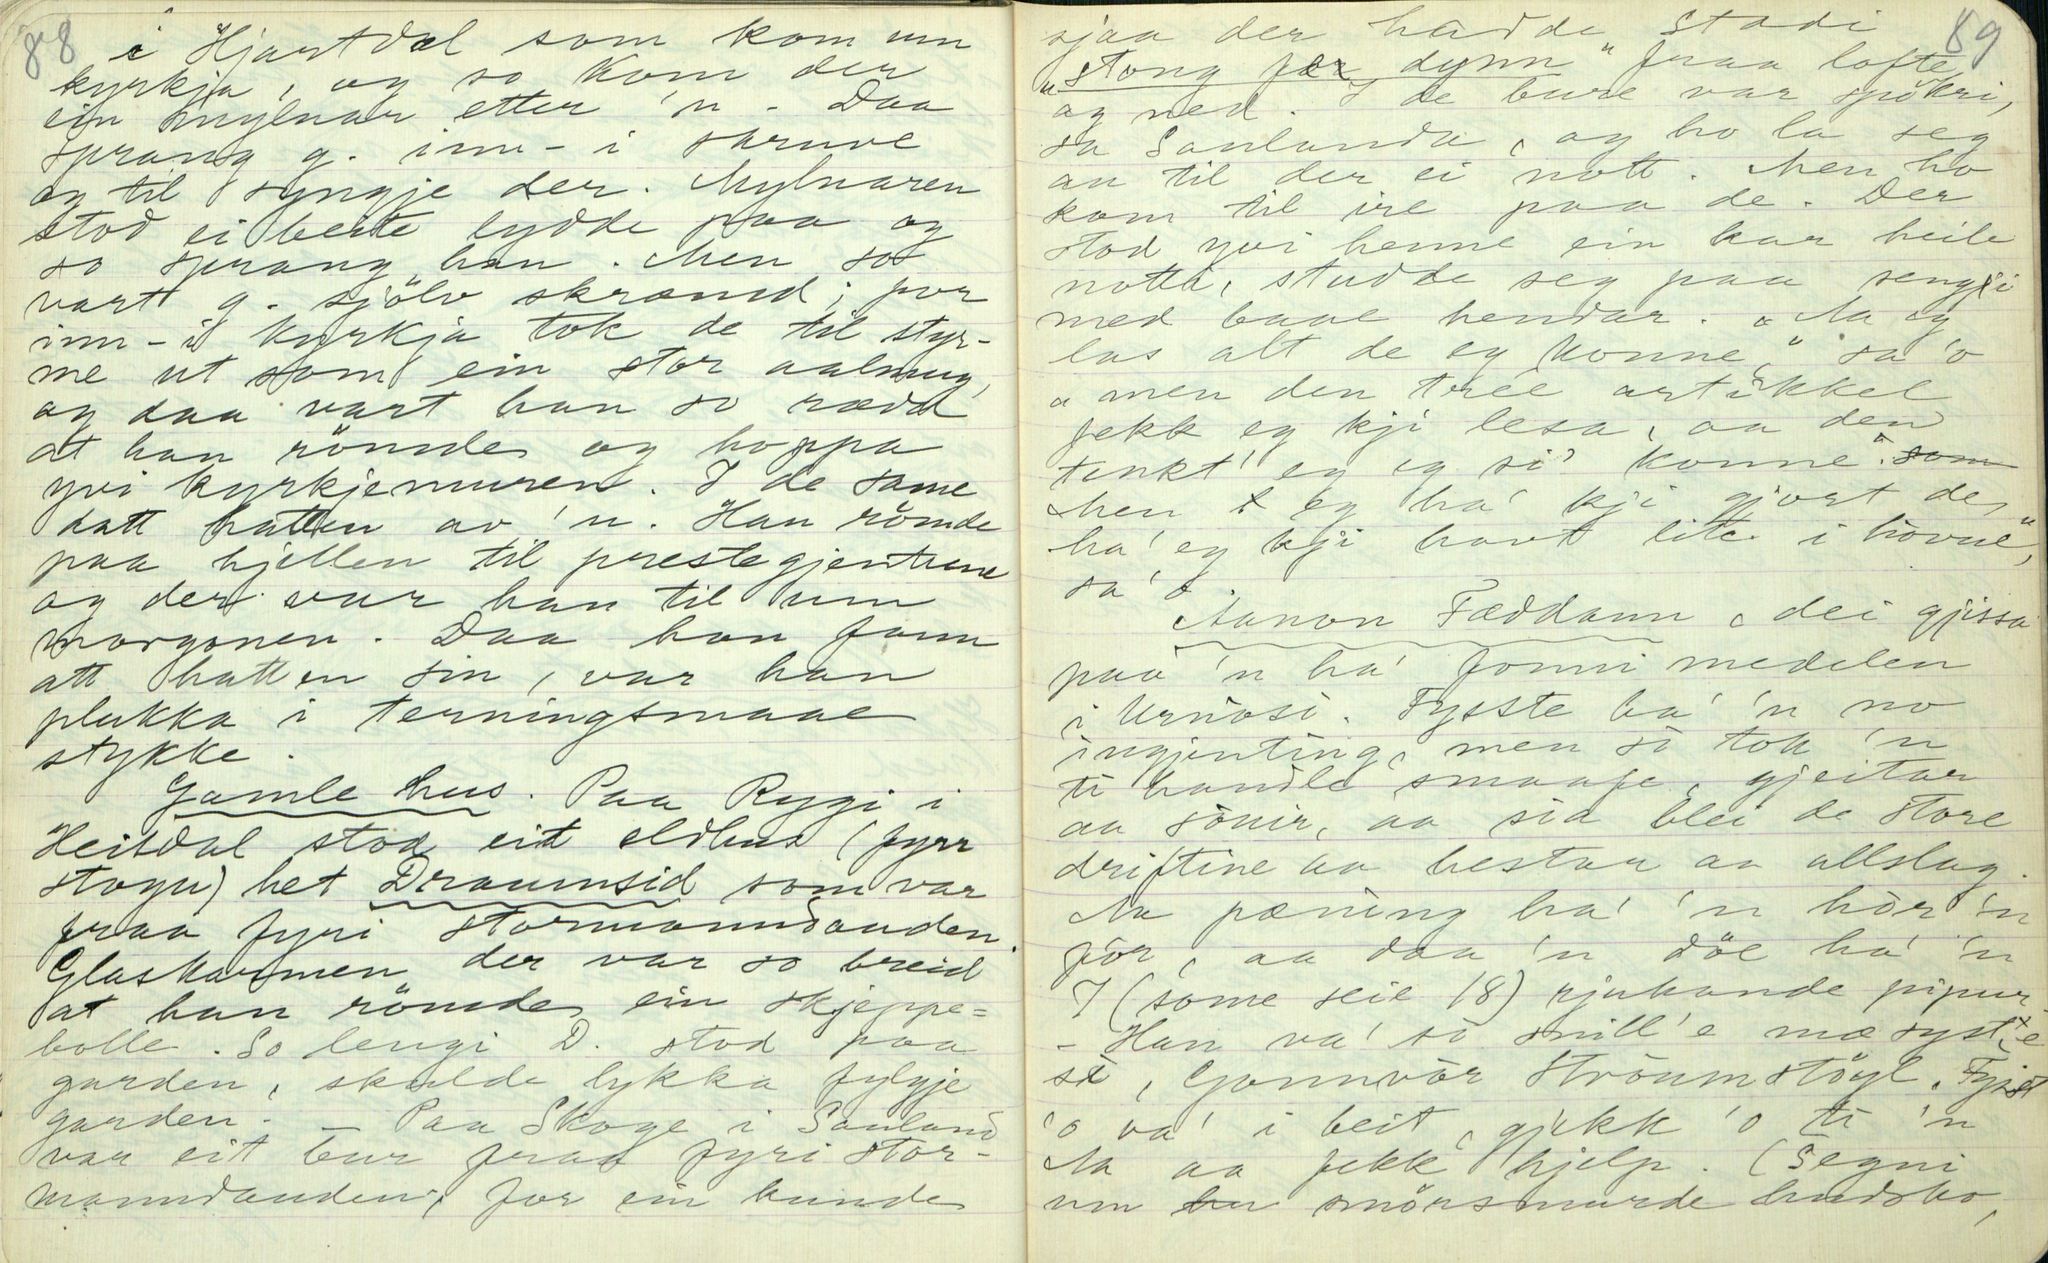 88
i Hjartdal som kom um
kyrkja, og so kom der
ein mylnar etter 'n - Daa
sprang g. inn-i skruve
og til syngje der. Mylnaren
stod ei beite lydde paa og
so sprang han. Men so
vart g. sjölv skræmd; for
inn-i kyrkja tok de til styr-
me ut som ein stor aalmug,
og daa vart han so rædd
at han römde og hoppa
yvi kyrkjemuren. I de same
datt hatten av 'n. Han römde
paa hjellen til prestegjentune
og der var han til um
morgonen. Daa han fann
att hatten sin, var han
plukka i terningsmaae
stykke.
Gamle hus. Paa Rygi i
Heitdal stod eit eldhus (fyrr
stogu) het Draumsid som var
fraa fyri stormanndauden.
Glaskarmen der var so breid
at han römde ein skjeppe=
bolle. So lengi D. stod paa
garden, skulde lykka fylgje
garden. - Paa Skoge i Sauland
var eit bur fraa fyri stor-
manndauden, for ein kunde
89
sjaa der hadde stadi
"stong fer dynn" fraa lofte
og ned. I de bure var spökri,
sa Saulanda, og ho la seg
an til der ei nott. Men ho
kom til ire paa de. Der
stod yvi henne ein kar heile
notti, studde seg paa sengji
med baae hendar. "Aa eg
las alt de eg konne," sa 'o
"men den tree artikkel
fekk eg kji lesa, aa den
tenkt' eg eg si' konne". som
Men eg ha' kji gjort de,
ha' eg kji havt lite i hövue",
sa' o
Aanon Fæddann, dei gjissa
paa 'n ha' fonni medelen
i Urdiosi. Fysste ha' 'n no
ingjenting, men so tok 'n
ti handle smaafe, gjeitar
aa souir, aa sia blei de store
driftine aa hestar aa allslag.
Aa pæning ha' 'n hör 'n
för, aa daa 'n döe ha' 'n
7 (some seie 18) rjukande pipur.
- Han va' so snill'e mæ syst'e
si, Gonnvör Straumstöyl. Fysst
'o va' i beit, gjekk 'o ti 'n
Aa aa fekk hjelp. (Segni
um smörsmurde hudsko,